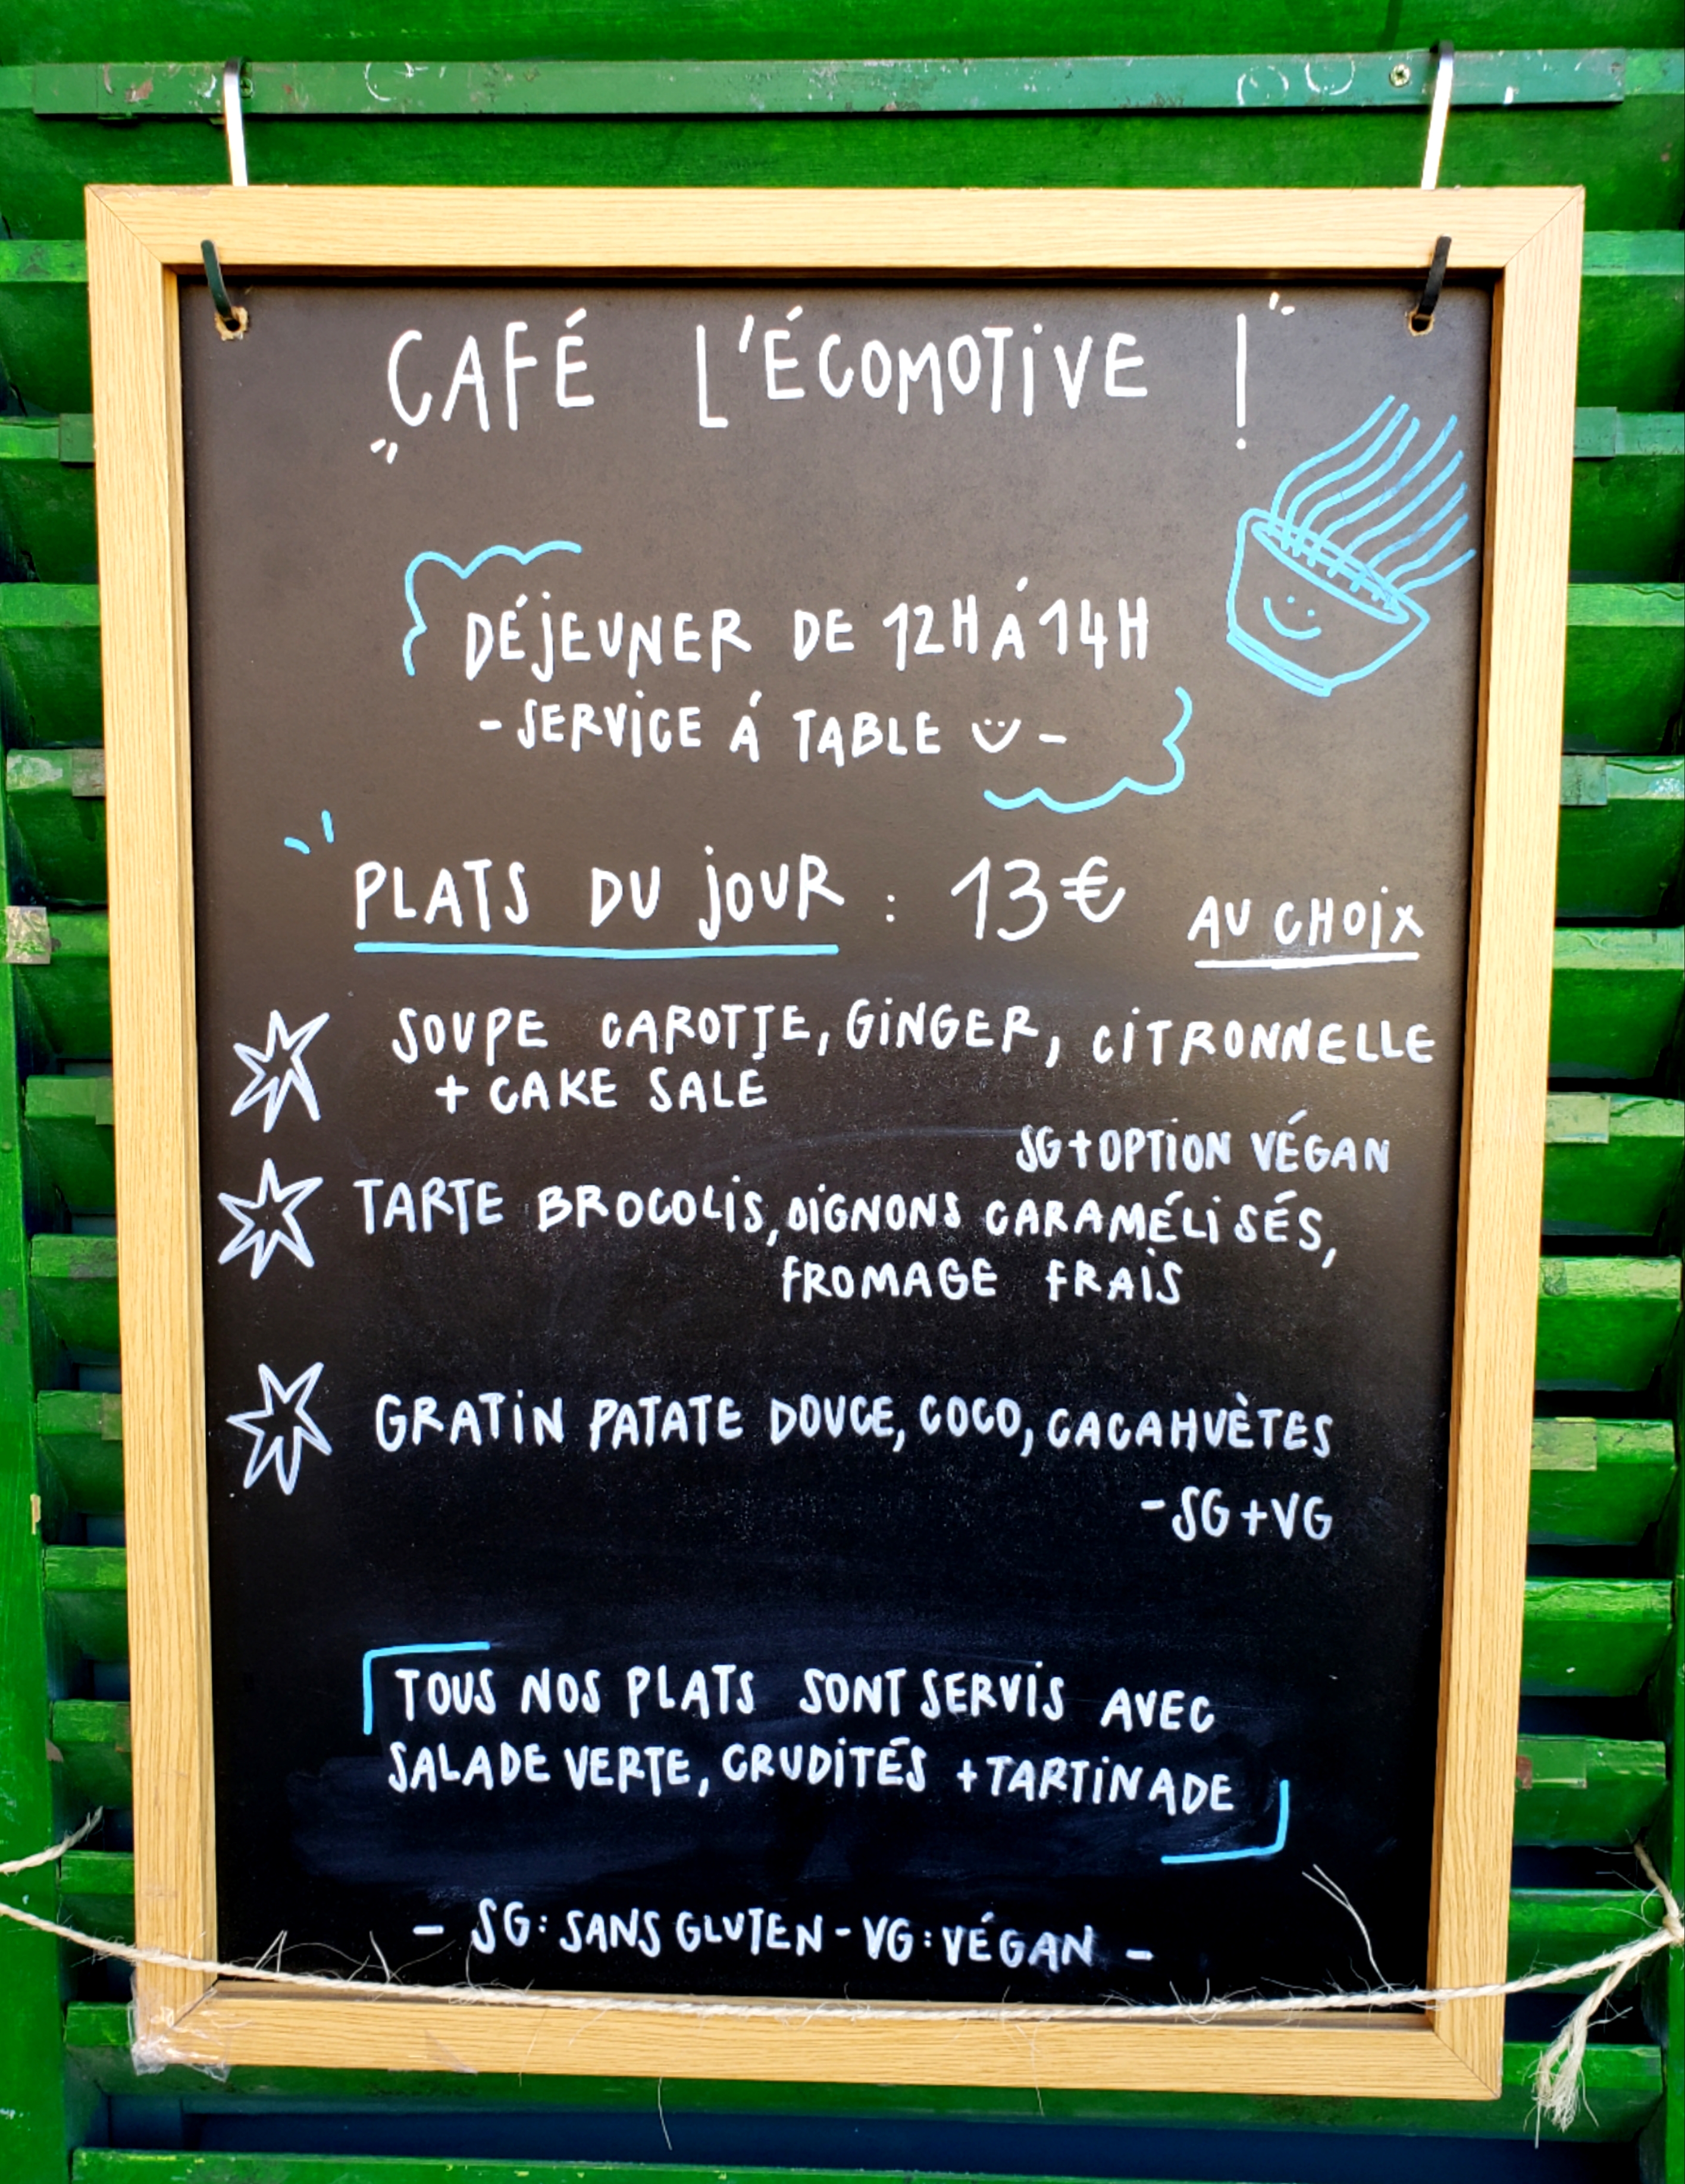 CAFÉ L'ÉCOMOTIVE !
DÉJEUNER DE 12H Á 14H
- SERVICE Á TABLE -
PLATS DU JOUR : 13€ AU CHOIX
SOUPE CAROTTE, GINGER, CITRONNELLE
+ CAKE SALÉ
SG + OPTION VÉGAN
TARTE BROCOLIS, OIGNONS CARAMÉLISÉS,
FROMAGE FRAIS
GRATIN PATATE DOUCE, COCO, CACAHUÈTES
- SG + VG
TOUS NOS PLATS SONT SERVIS AVEC
SALADE VERTE, CRUDITÉS + TARTINADE
- SG : SANS GLUTEN - VG : VÉGAN -